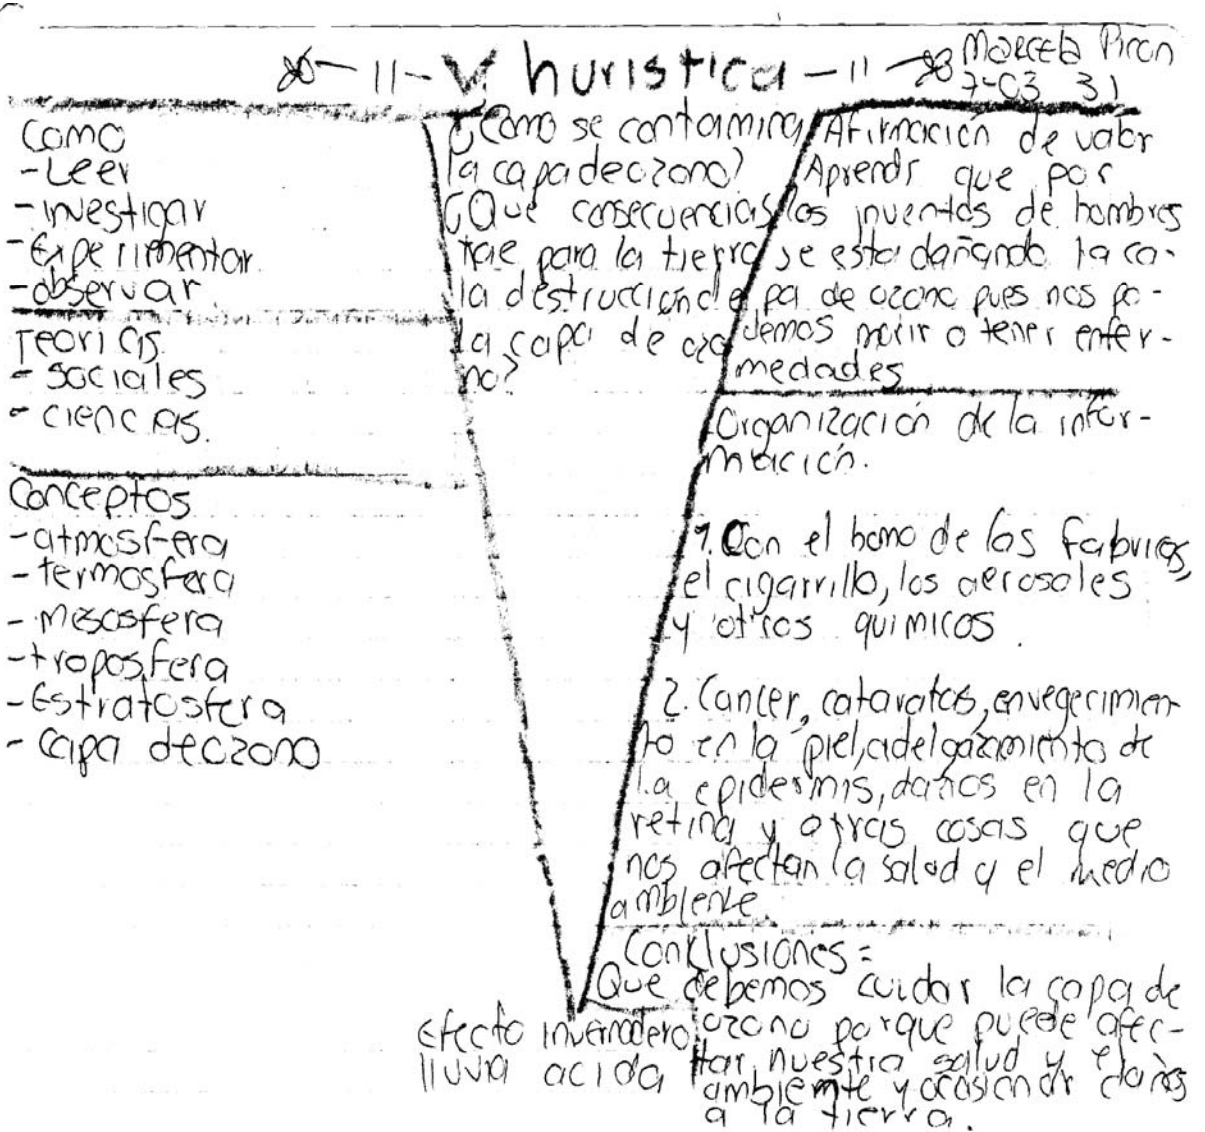 V. huristica
Marcela Piron
7-03 31
Como
- Leer
- investigar
- Experimentar
- observar
Teorias
- sociales
- ciencias.
Conceptos
- atmosfera
- termosfera
- mesosfera
- troposfera
- Estratosfera
- capa deozono
¿Como se contamina
la capa deozono?
¿Que consecuencias
trae para la tierra
la destrucciónde
la capa de ozo
no?
Afirmación de valor
Aprendi que por
los inventos de hombres
se esta dañando la ca-
pa de ozono pues nos po-
demos morir o tener enfer-
medades
Organización de la infor-
mación.
1. Con el homo de las fabricas,
el cigarrillo, los aerosoles
y otros quimicos.
2. Cancer, cataratas, envegecimien
to en la piel, adelgazamiento de
la epidermis, daños en la
retina y otras cosas que
nos afectan la salud y el medio
ambiente
Conklusiones =
Que debemos cuidar la capa de
ozono porque puede afec-
tar nuestra salud y el
ambiemte y ocasionar daños
a la tierra.
Efecto invernadero
lluvia acida